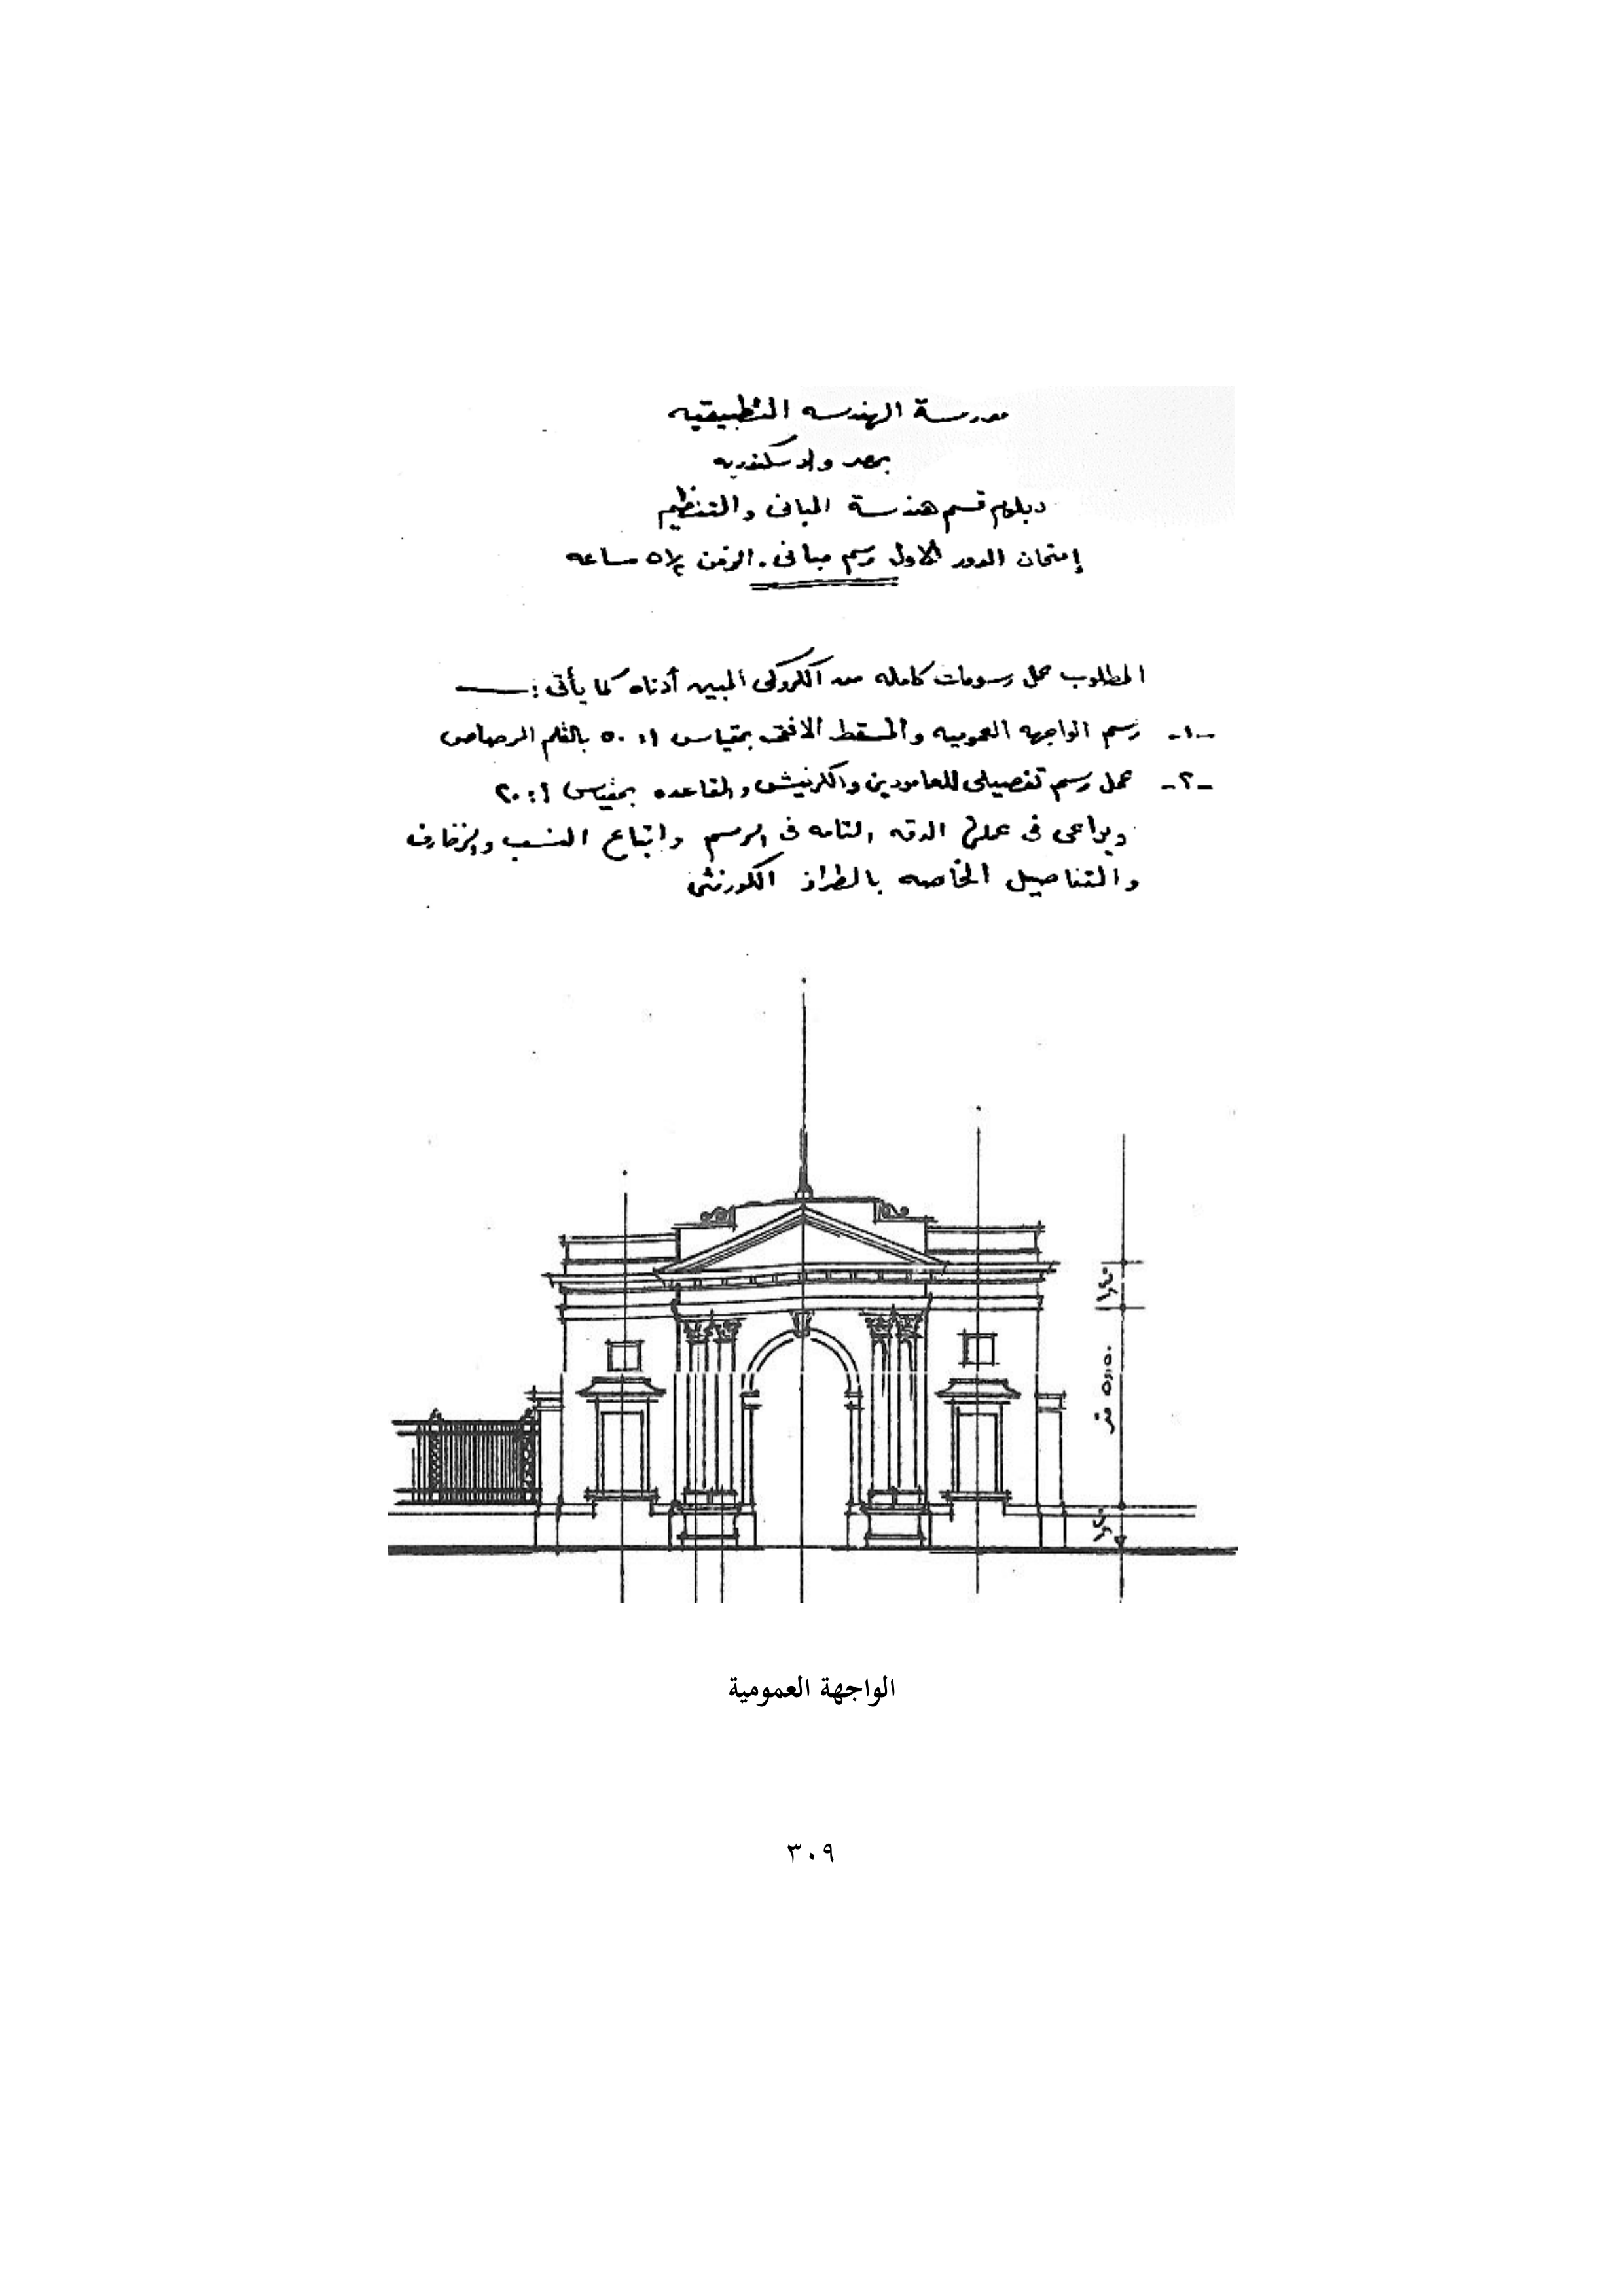 مدرسة الهندسه التطبيقيه
بمصر والاسكندريه
دبلوم قسم هندسة المبانى والتنظيم
إمتحان الدور الاول رسم مبانى . الزمن ٥١/٢ ساعه
المطلوب عمل رسومات كامله من الكروكى المبين أدناه كما يأتى :ــ
-١- رسم الواجهه العموميه والمسقط الافقى بمقياس ١ : ٥٠ بالقلم الرصاص
-٢- عمل رسم تفصيلى للعامودين والكرنيش والقاعده بمقياس ١ : ٢٠
ويراعى فى عملها الدقه التامه فى الرسم واتباع النسب والزخارف
والتفاصيل الخاصه بالطراز الكورنثى
٥,٥٠ متر
الواجهة العمومية
٣٠٩